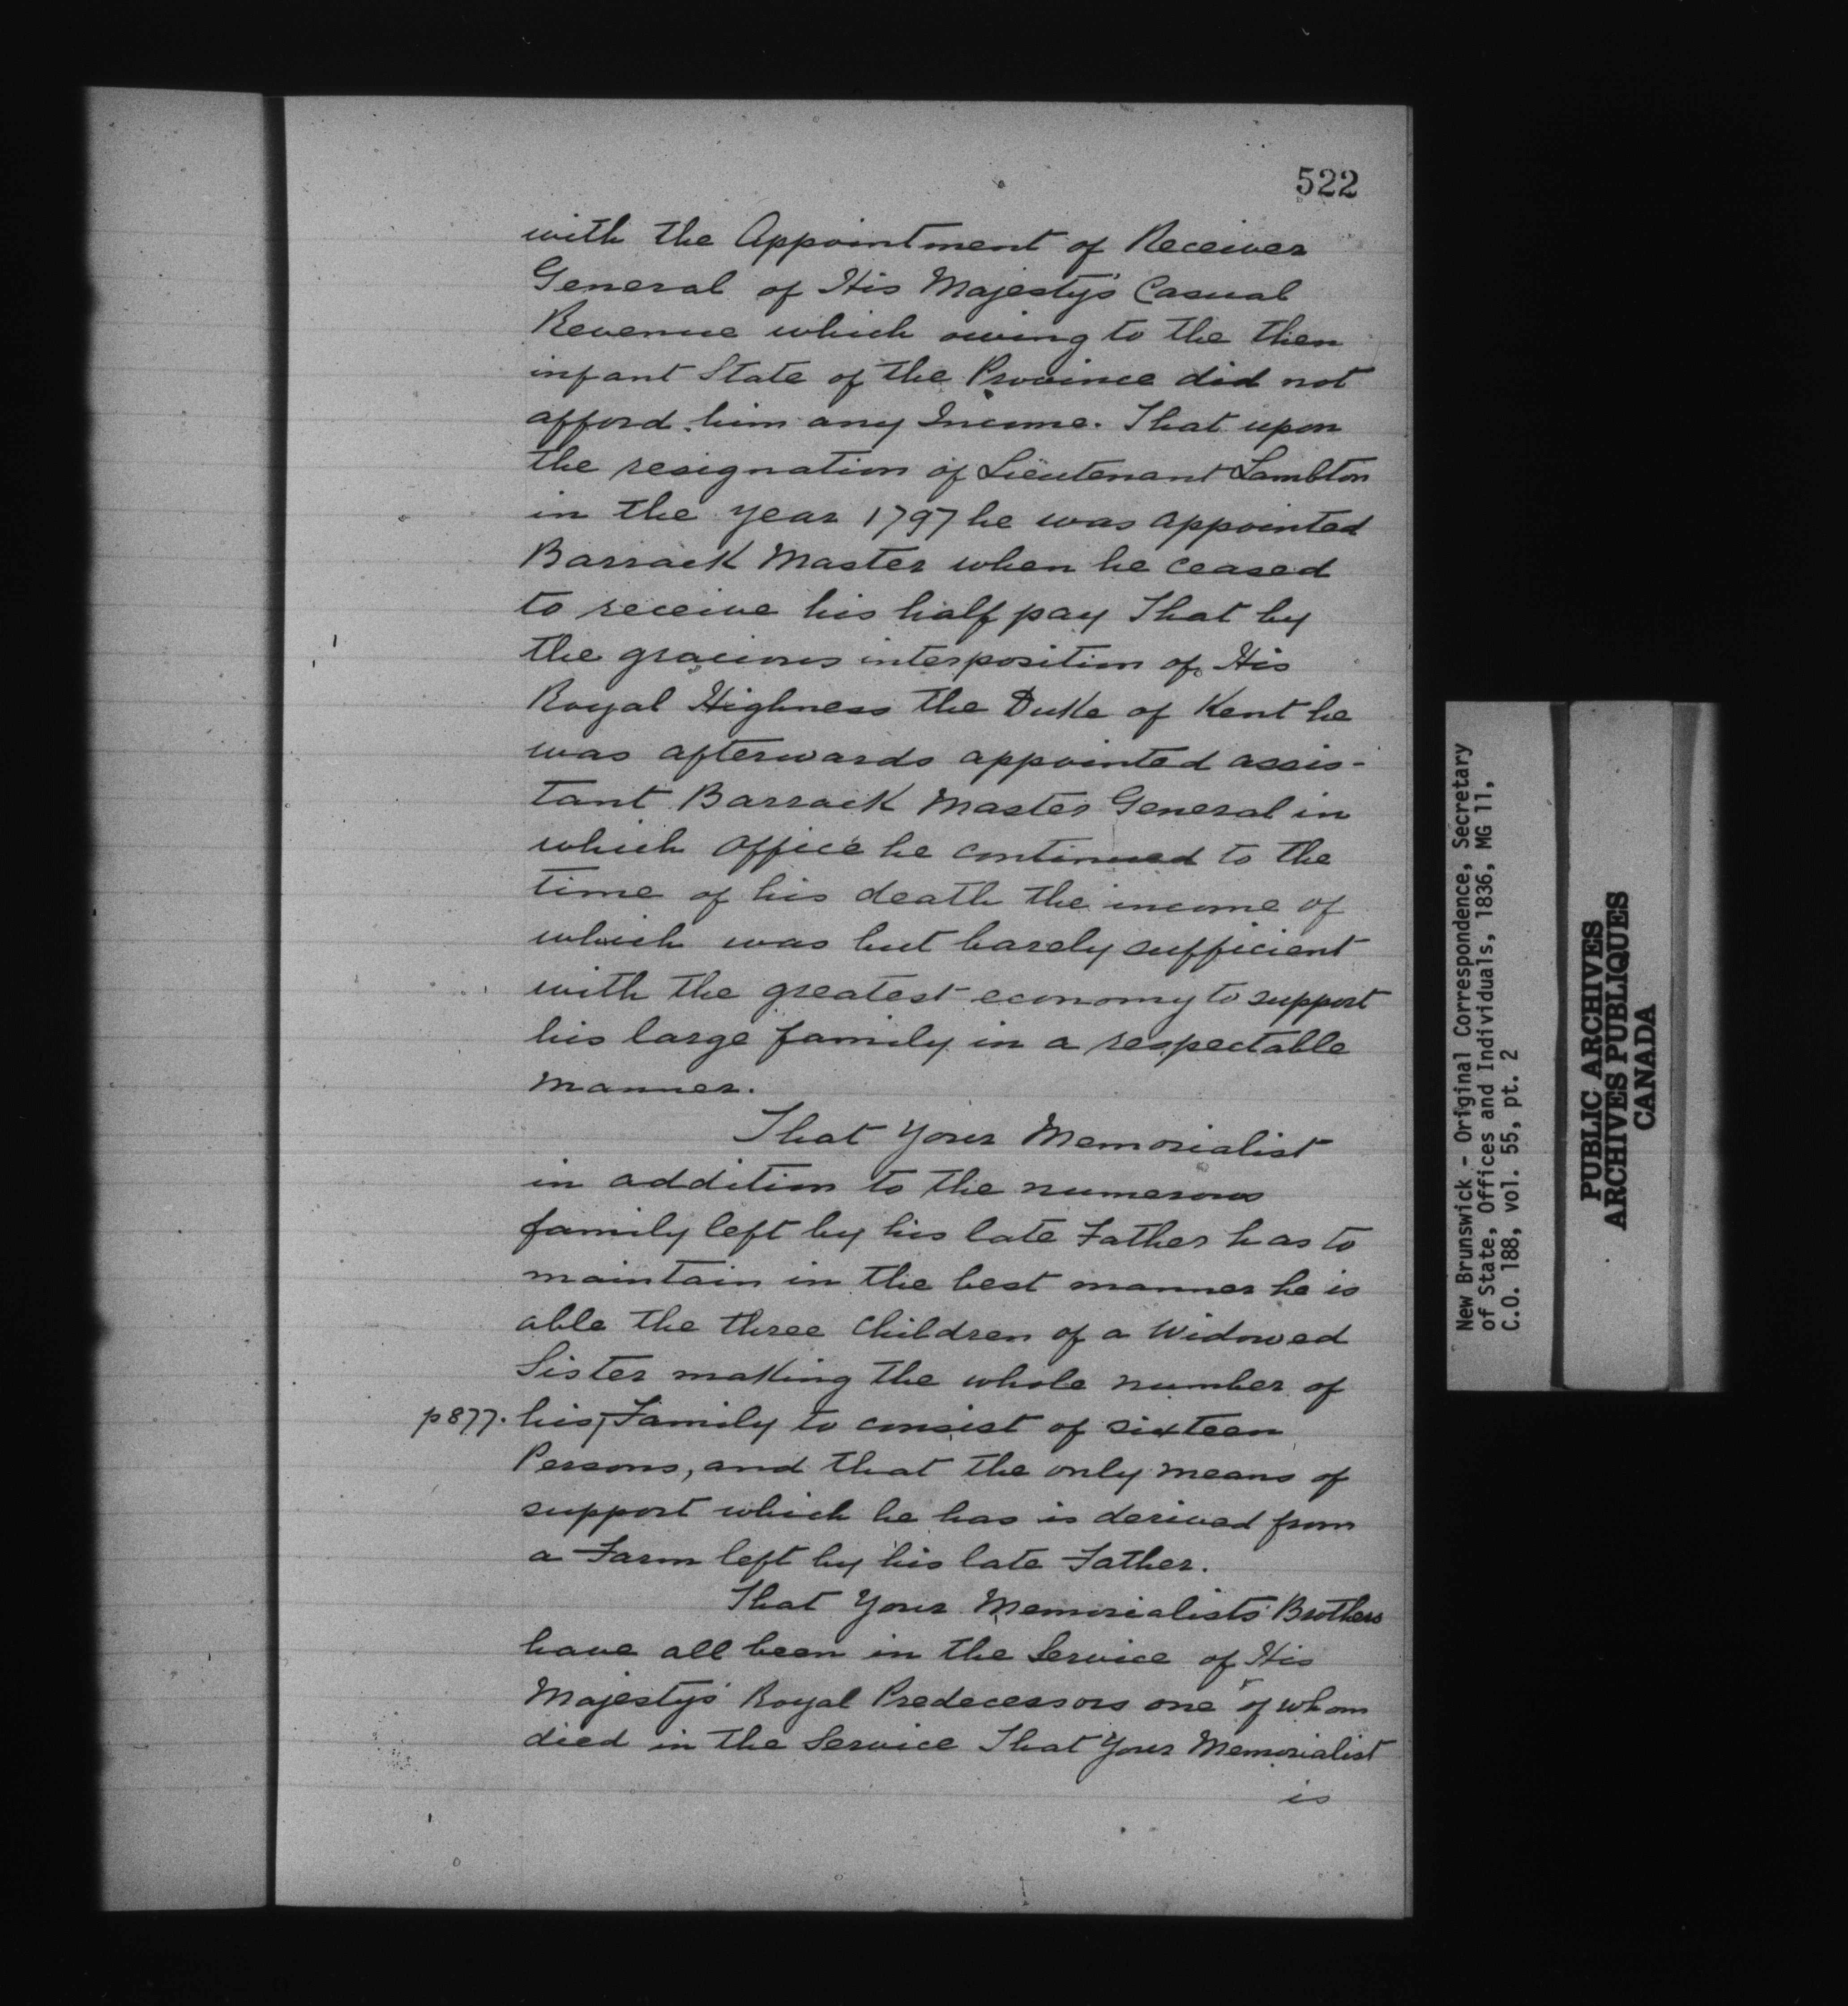 522
with the Appointment of Receiver
General of His Majesty's Casual
Revenue which owing to the then
infant State of the Province did not
afford him any Income. That upon
the resignation of Lieutenant Lambton
in the year 1797 he was appointed
Barrack Master when he ceased
to receive his half pay That by
the gracious interposition of His
Royal Highness the Duke of Kent he
was afterwards appointed assis-
tant Barrack Master General in
which office he continued to the
time of his death the income of
which was but barely sufficient
with the greatest economy to support
his large family in a respectable
manner.
That Your Memorialist
in addition to the numerous
family left by his late Father has to
maintain in the best manner he is
able the three Children of a Widowed
Sister making the whole number of
p877. his/Family to consist of sixteen
Persons, and that the only means of
support which he has is derived from
a Farm left by his late Father.
That Your Memorialists' Brothers
have all been in the Service of His
Majesty's Royal Predecessors one of whom
died in the Service That Your Memorialist
is
New Brunswick - Original Correspondence, Secretary
of State, Offices and Individuals, 1836, MG 11,
C.O. 188, vol. 55, pt. 2
PUBLIC ARCHIVES
ARCHIVES PUBLIQUES
CANADA